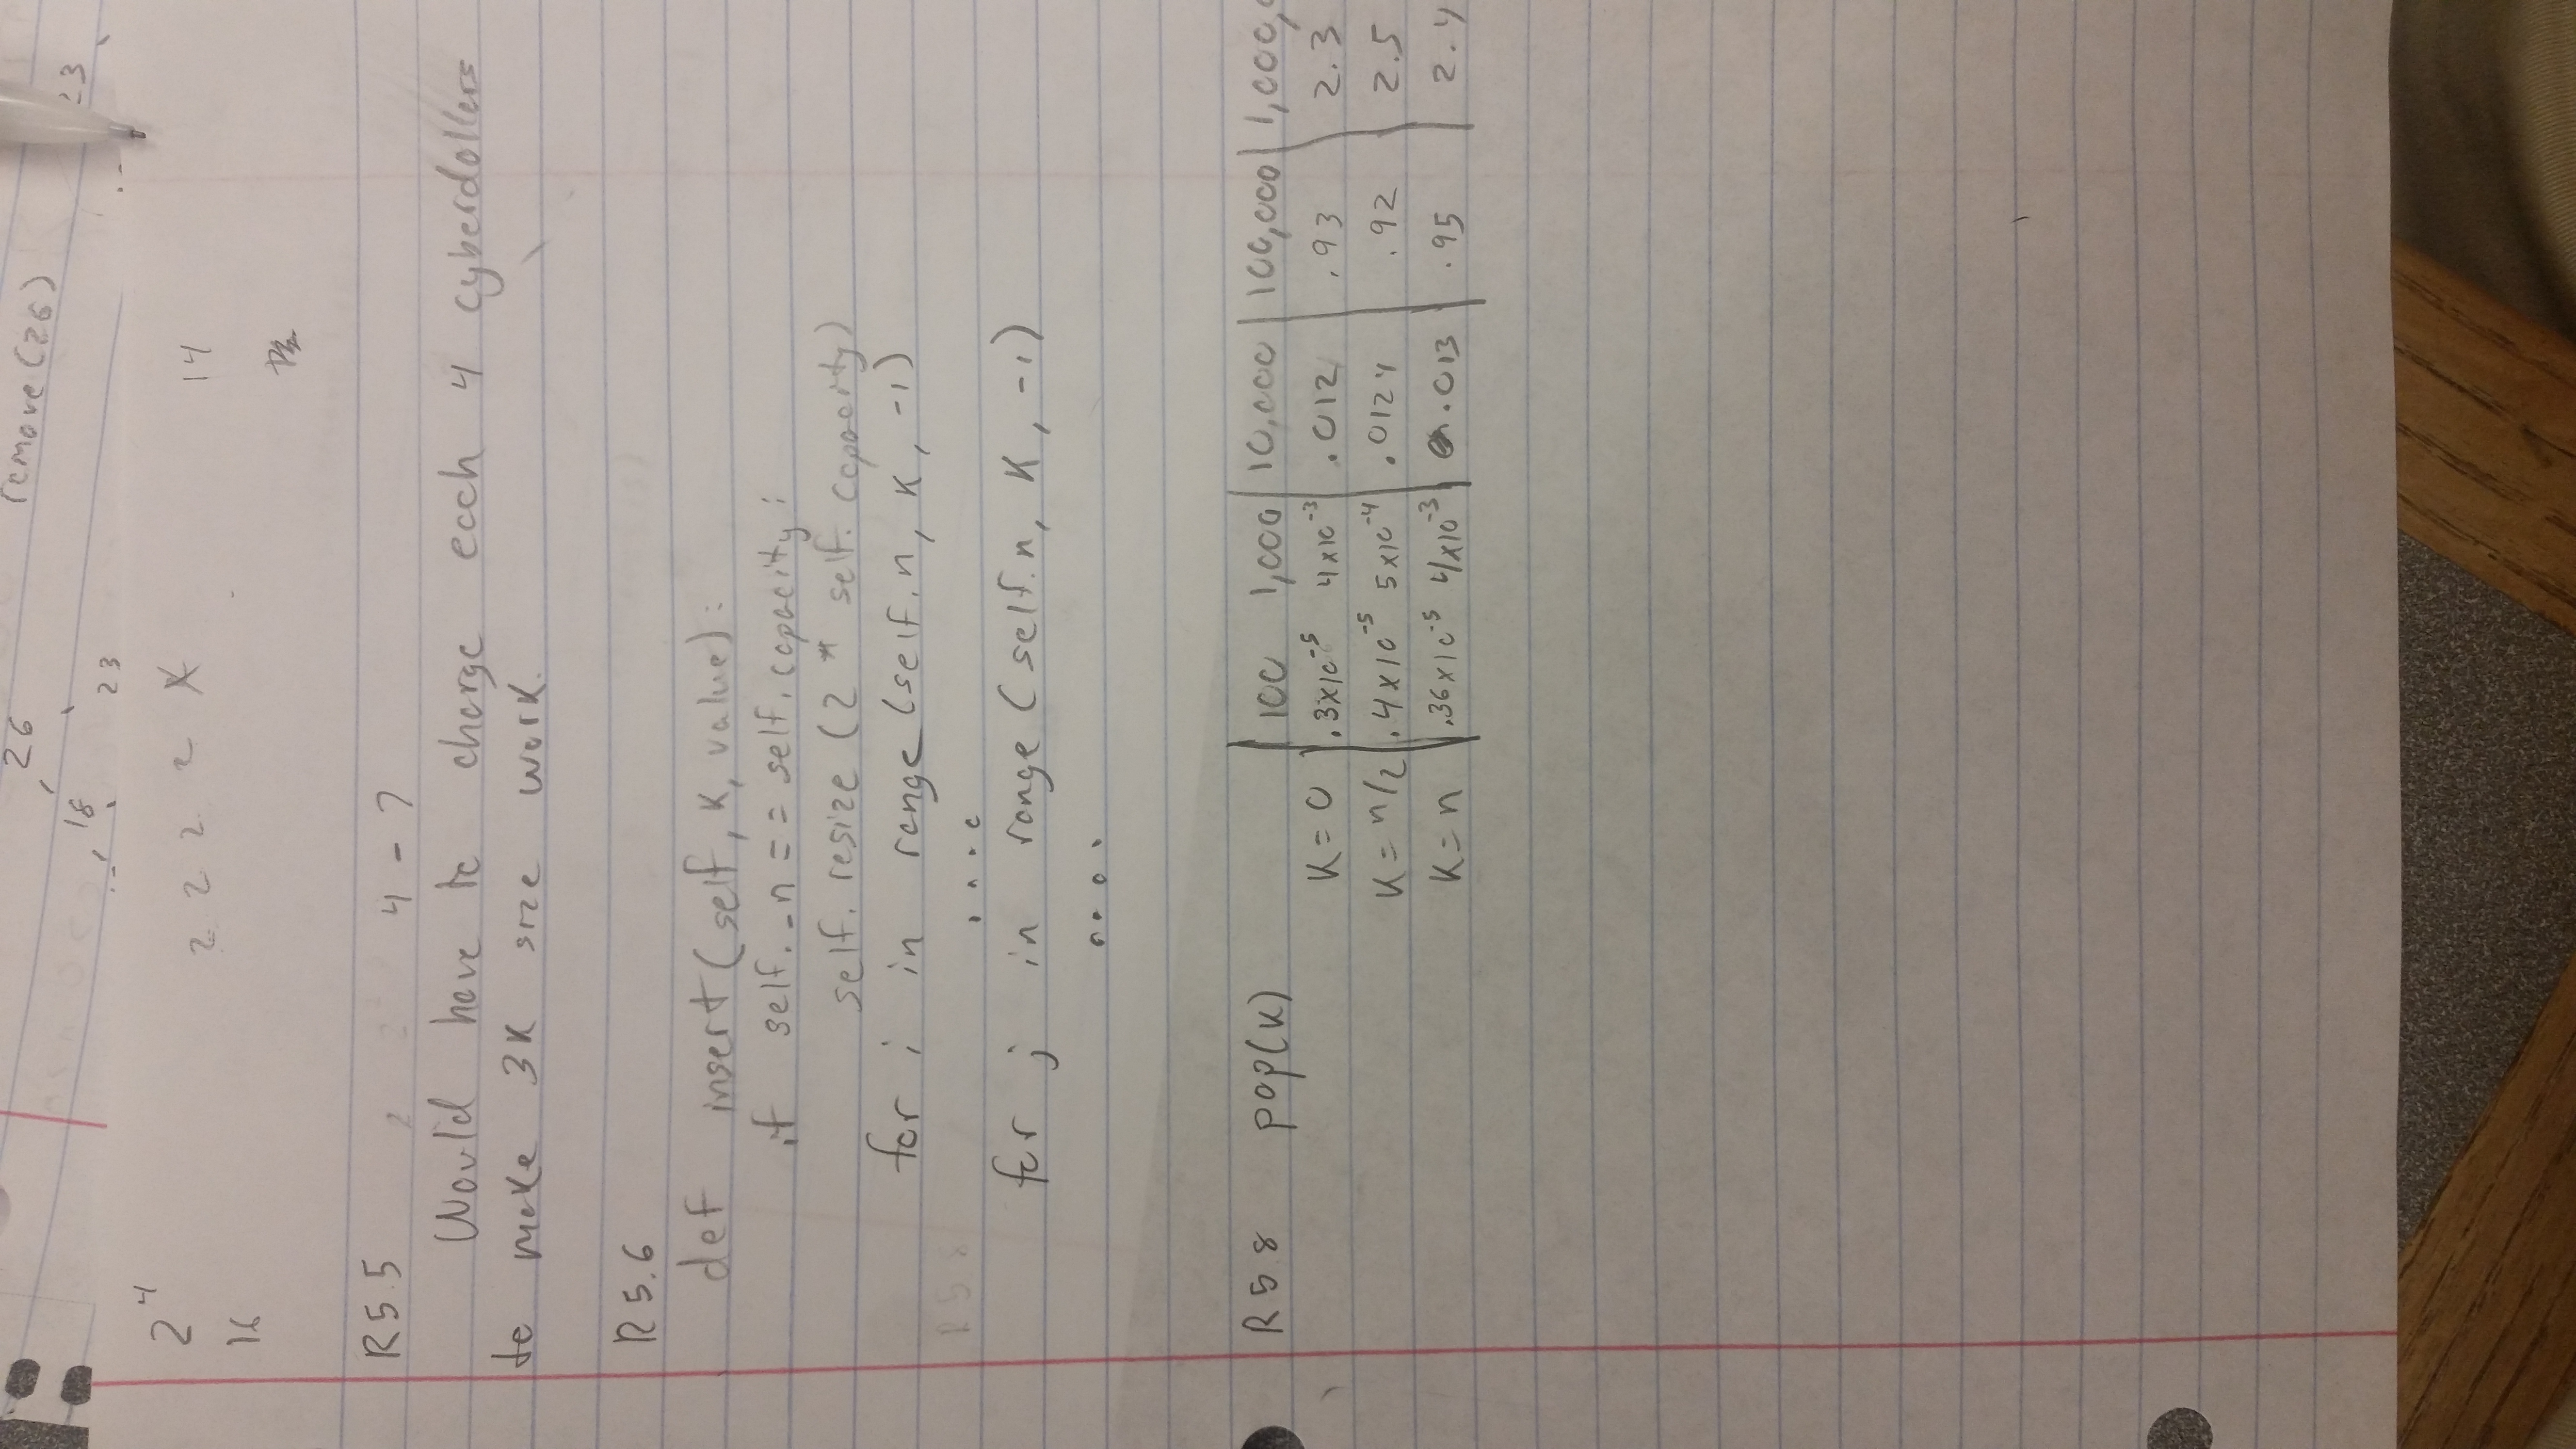 26 remove(26)
18 23
23
2^4 2 2 2 2 14
16
R5.5 4 - 7
Would have to charge each 4 cyberdollers
to make 3K size work.
R 5.6
def insert(self, K, value):
if self._n == self.capacity:
self.resize (2 * self.capacity)
for i in range(self.n, K, -1)
....
R 5 8
for j in range (self.n, K, -1)
....
R 5 8 pop(k) 100 1,000 10,000 100,000 1,000,
K=0 .3x10^-5 4x10^-3 .012 .93 2.3
K=n/2 .4x10^-5 5x10^-4 .0124 .92 2.5
K=n .36x10^-5 4x10^-3 .013 .95 2.4